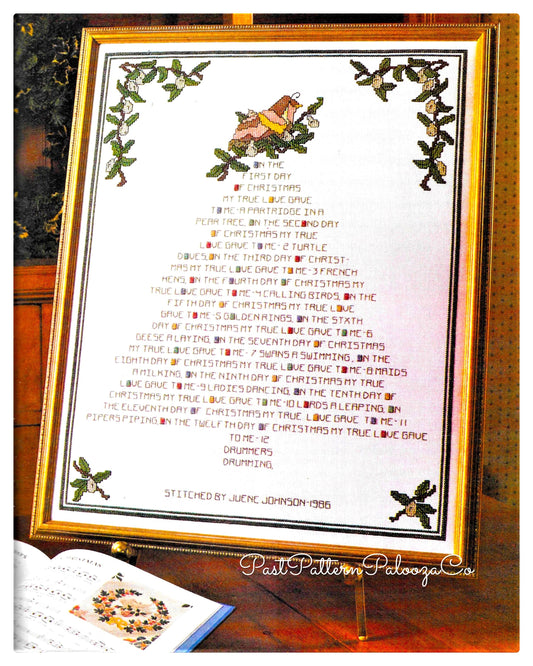 ON THE
FIRST DAY
OF CHRISTMAS
MY TRUE LOVE GAVE
TO ME-A PARTRIDGE IN A
PEAR TREE, ON THE SECOND DAY
OF CHRISTMAS MY TRUE
LOVE GAVE TO ME-2 TURTLE
DOVES, ON THE THIRD DAY OF CHRIST-
MAS MY TRUE LOVE GAVE TO ME-3 FRENCH
HENS, ON THE FOURTH DAY OF CHRISTMAS MY
TRUE LOVE GAVE TO ME-4 CALLING BIRDS, ON THE
FIFTH DAY OF CHRISTMAS MY TRUE LOVE
GAVE TO ME-5 GOLDEN RINGS, ON THE SIXTH
DAY OF CHRISTMAS MY TRUE LOVE GAVE TO ME-6
GEESE A LAYING, ON THE SEVENTH DAY OF CHRISTMAS
MY TRUE LOVE GAVE TO ME-7 SWANS A SWIMMING, ON THE
EIGHTH DAY OF CHRISTMAS MY TRUE LOVE GAVE TO ME-8 MAIDS
A MILKING, ON THE NINTH DAY OF CHRISTMAS MY TRUE
LOVE GAVE TO ME-9 LADIES DANCING, ON THE TENTH DAY OF
CHRISTMAS MY TRUE LOVE GAVE TO ME-10 LORDS A LEAPING, ON
THE ELEVENTH DAY OF CHRISTMAS MY TRUE LOVE GAVE TO ME-11
PIPERS PIPING, ON THE TWELFTH DAY OF CHRISTMAS MY TRUE LOVE GAVE
TO ME-12
DRUMMERS
DRUMMING.
STITCHED BY JUENE JOHNSON-1986
PastPatternPaloozaCo